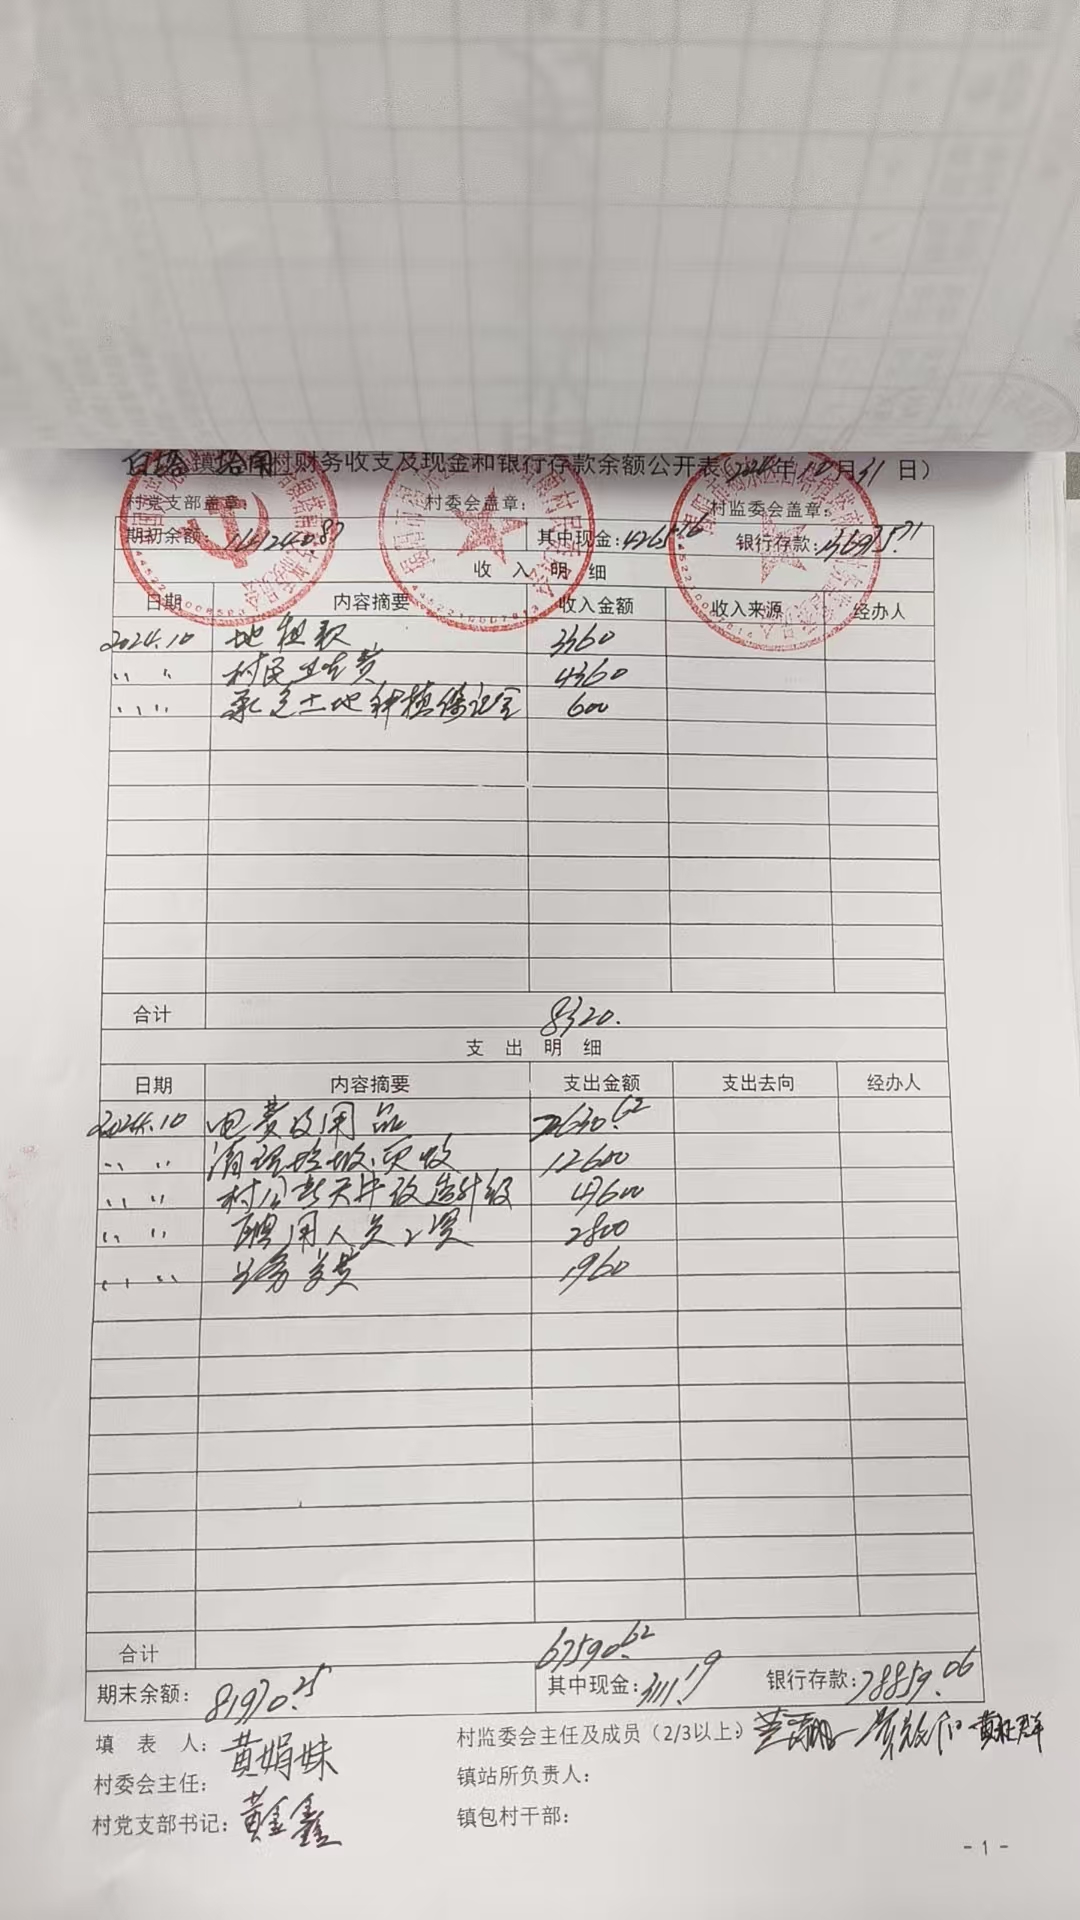 白塔镇塔南村财务收支及现金和银行存款余额公开表(2024年12月31日)
村党支部盖章: 村委会盖章: 村监委会盖章:
期初余额: 141240.87 其中现金:4265.16 银行存款:136975.71
收 入 明 细
日期 内容摘要 收入金额 收入来源 经办人
2024.10 地租款 3360
〃 〃 村民 费 4360
〃 〃 承包土地种植保证金 600
合计 8320.
支 出 明 细
日期 内容摘要 支出金额 支出去向 经办人
2024.10 电费及用品 2630.62
〃 〃 清理垃圾、 12600
〃 〃 村公 天井改造升级 47600
〃 〃 聘用人员工资 2800
〃 〃 公务 费 1960
合计 67590.62
期末余额: 81970.25 其中现金:3111.19 银行存款:78859.06
填 表 人: 黄娟妹 村监委会主任及成员(2/3以上):
村委会主任: 镇站所负责人:
村党支部书记: 黄金鑫 镇包村干部:
- 1 -